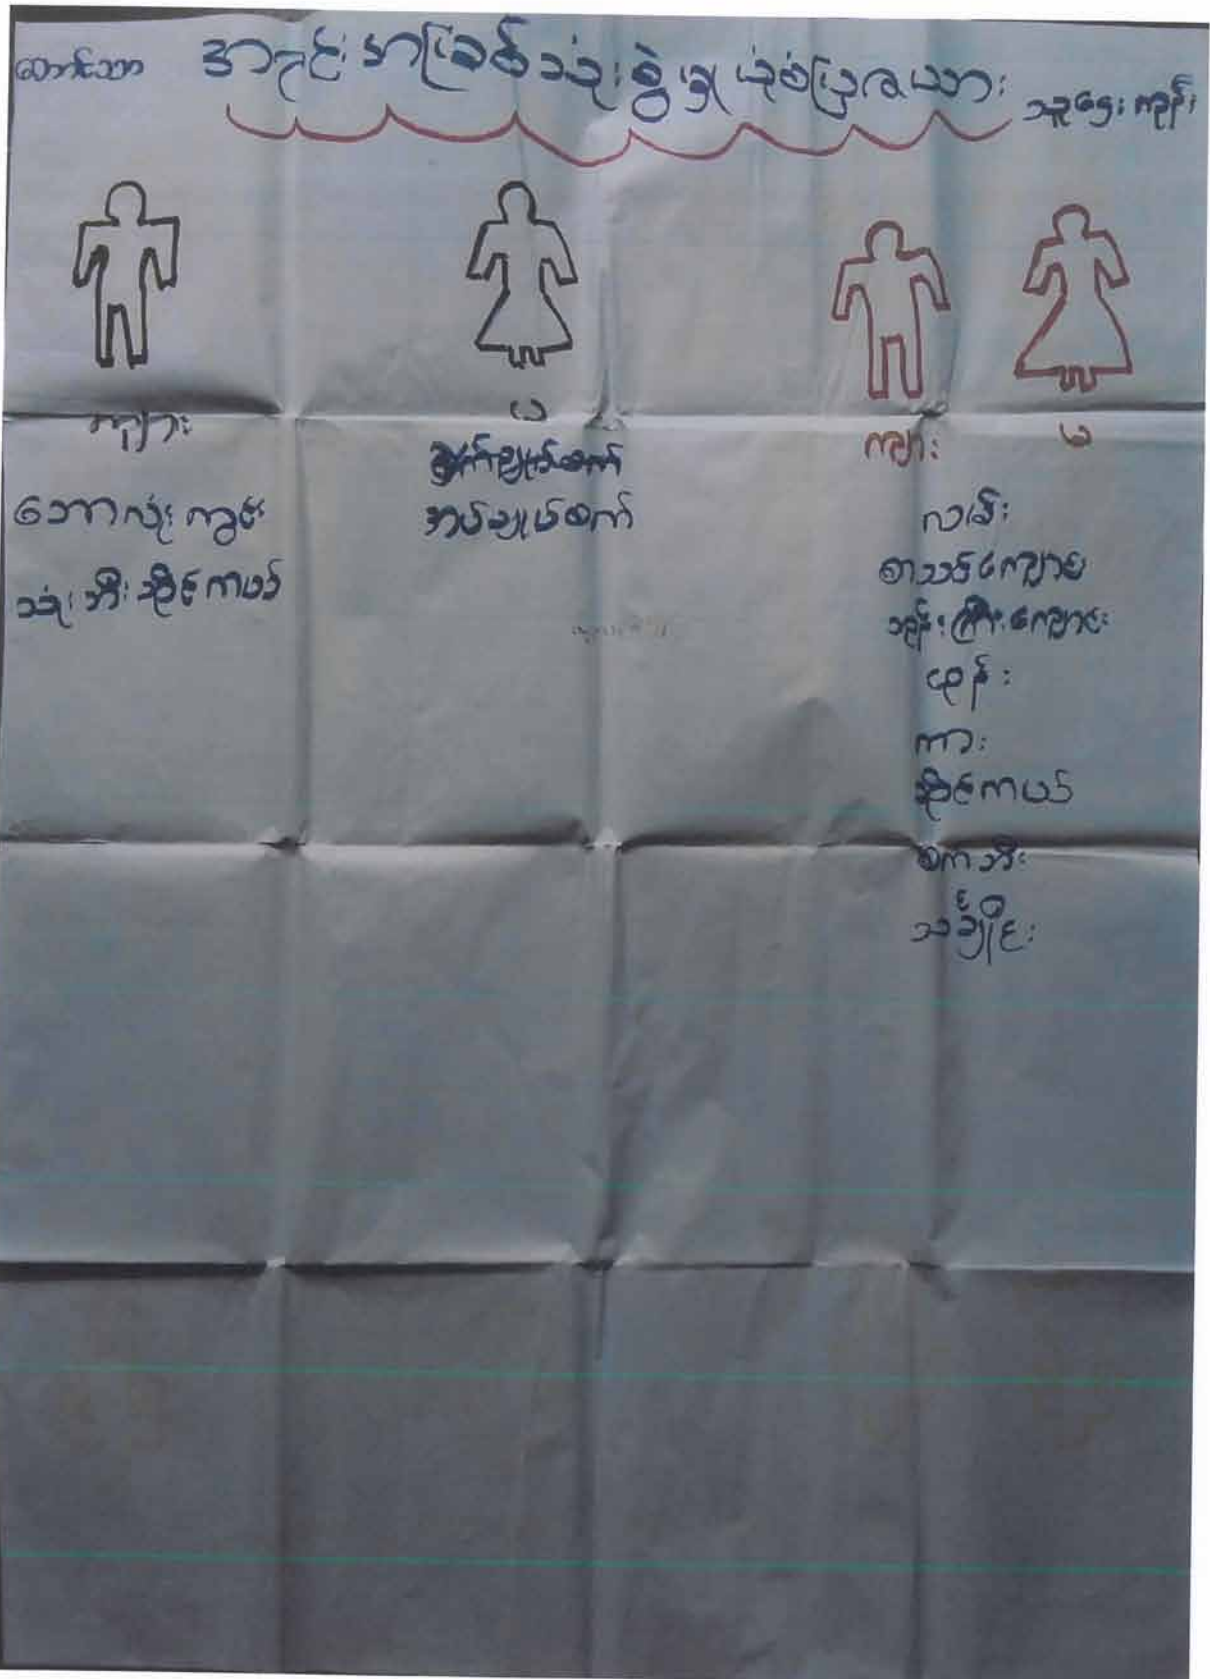 တောင်သာ အရင်းအမြစ်သုံးစွဲမှုပုံစံပြဇယား သူဌေးကုန်း
ကျား
မ
ကျား မ
ဘောလုံးကွင်း
သုံးဘီးဆိုင်ကယ်
စက်ချုပ်ထက်
အပ်ချုပ်ထက်
လမ်း
စာသင်ကျောင်း
ဘုန်းကြီးကျောင်း
ဖုန်း
ကား
ဆိုင်ကယ်
စက်ဘီး
သင်္ချိုင်း